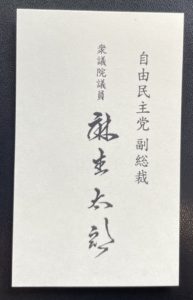 自由民主党 副総裁
衆議院議員
麻生太郎